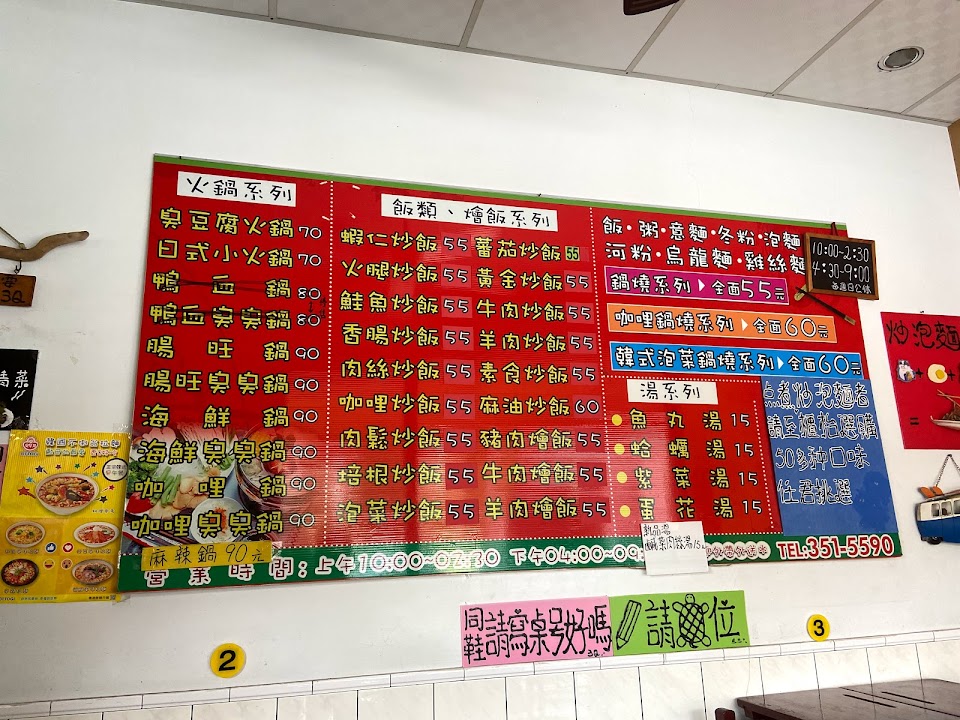 火鍋系列
臭豆腐火鍋 70
日式小火鍋 70
鴨血鍋 80
鴨血臭臭鍋 80
腸旺鍋 90
腸旺臭臭鍋 90
海鮮鍋 90
海鮮臭臭鍋 90
咖哩鍋 90
咖哩臭臭鍋 90
麻辣鍋 90元
飯類、燴飯系列
蝦仁炒飯 55 蕃茄炒飯 55
火腿炒飯 55 黃金炒飯 55
鮭魚炒飯 55 牛肉炒飯 55
香腸炒飯 55 羊肉炒飯 55
肉絲炒飯 55 素食炒飯 55
咖哩炒飯 55 麻油炒飯 60
肉鬆炒飯 55 豬肉燴飯 55
培根炒飯 55 牛肉燴飯 55
泡菜炒飯 55 羊肉燴飯 55
飯·粥·意麵·冬粉·泡麵
河粉·烏龍麵·雞絲麵
鍋燒系列▶全面55元
咖哩鍋燒系列▶全面60元
韓式泡菜鍋燒系列▶全面60元
湯系列
魚丸湯 15
蛤蠣湯 15
紫菜湯 15
蛋花湯 15
点煮炒泡麵者
請至櫃檯選購
50多种口味
任君挑選
10:00-2:30
4:30-9:00
每週日公休
營業時間:上午10:00~02:30 下午04:00~09:
TEL:351-5590
新品湯
炒泡麵
同鞋請寫桌號好嗎
請龜位
2
3